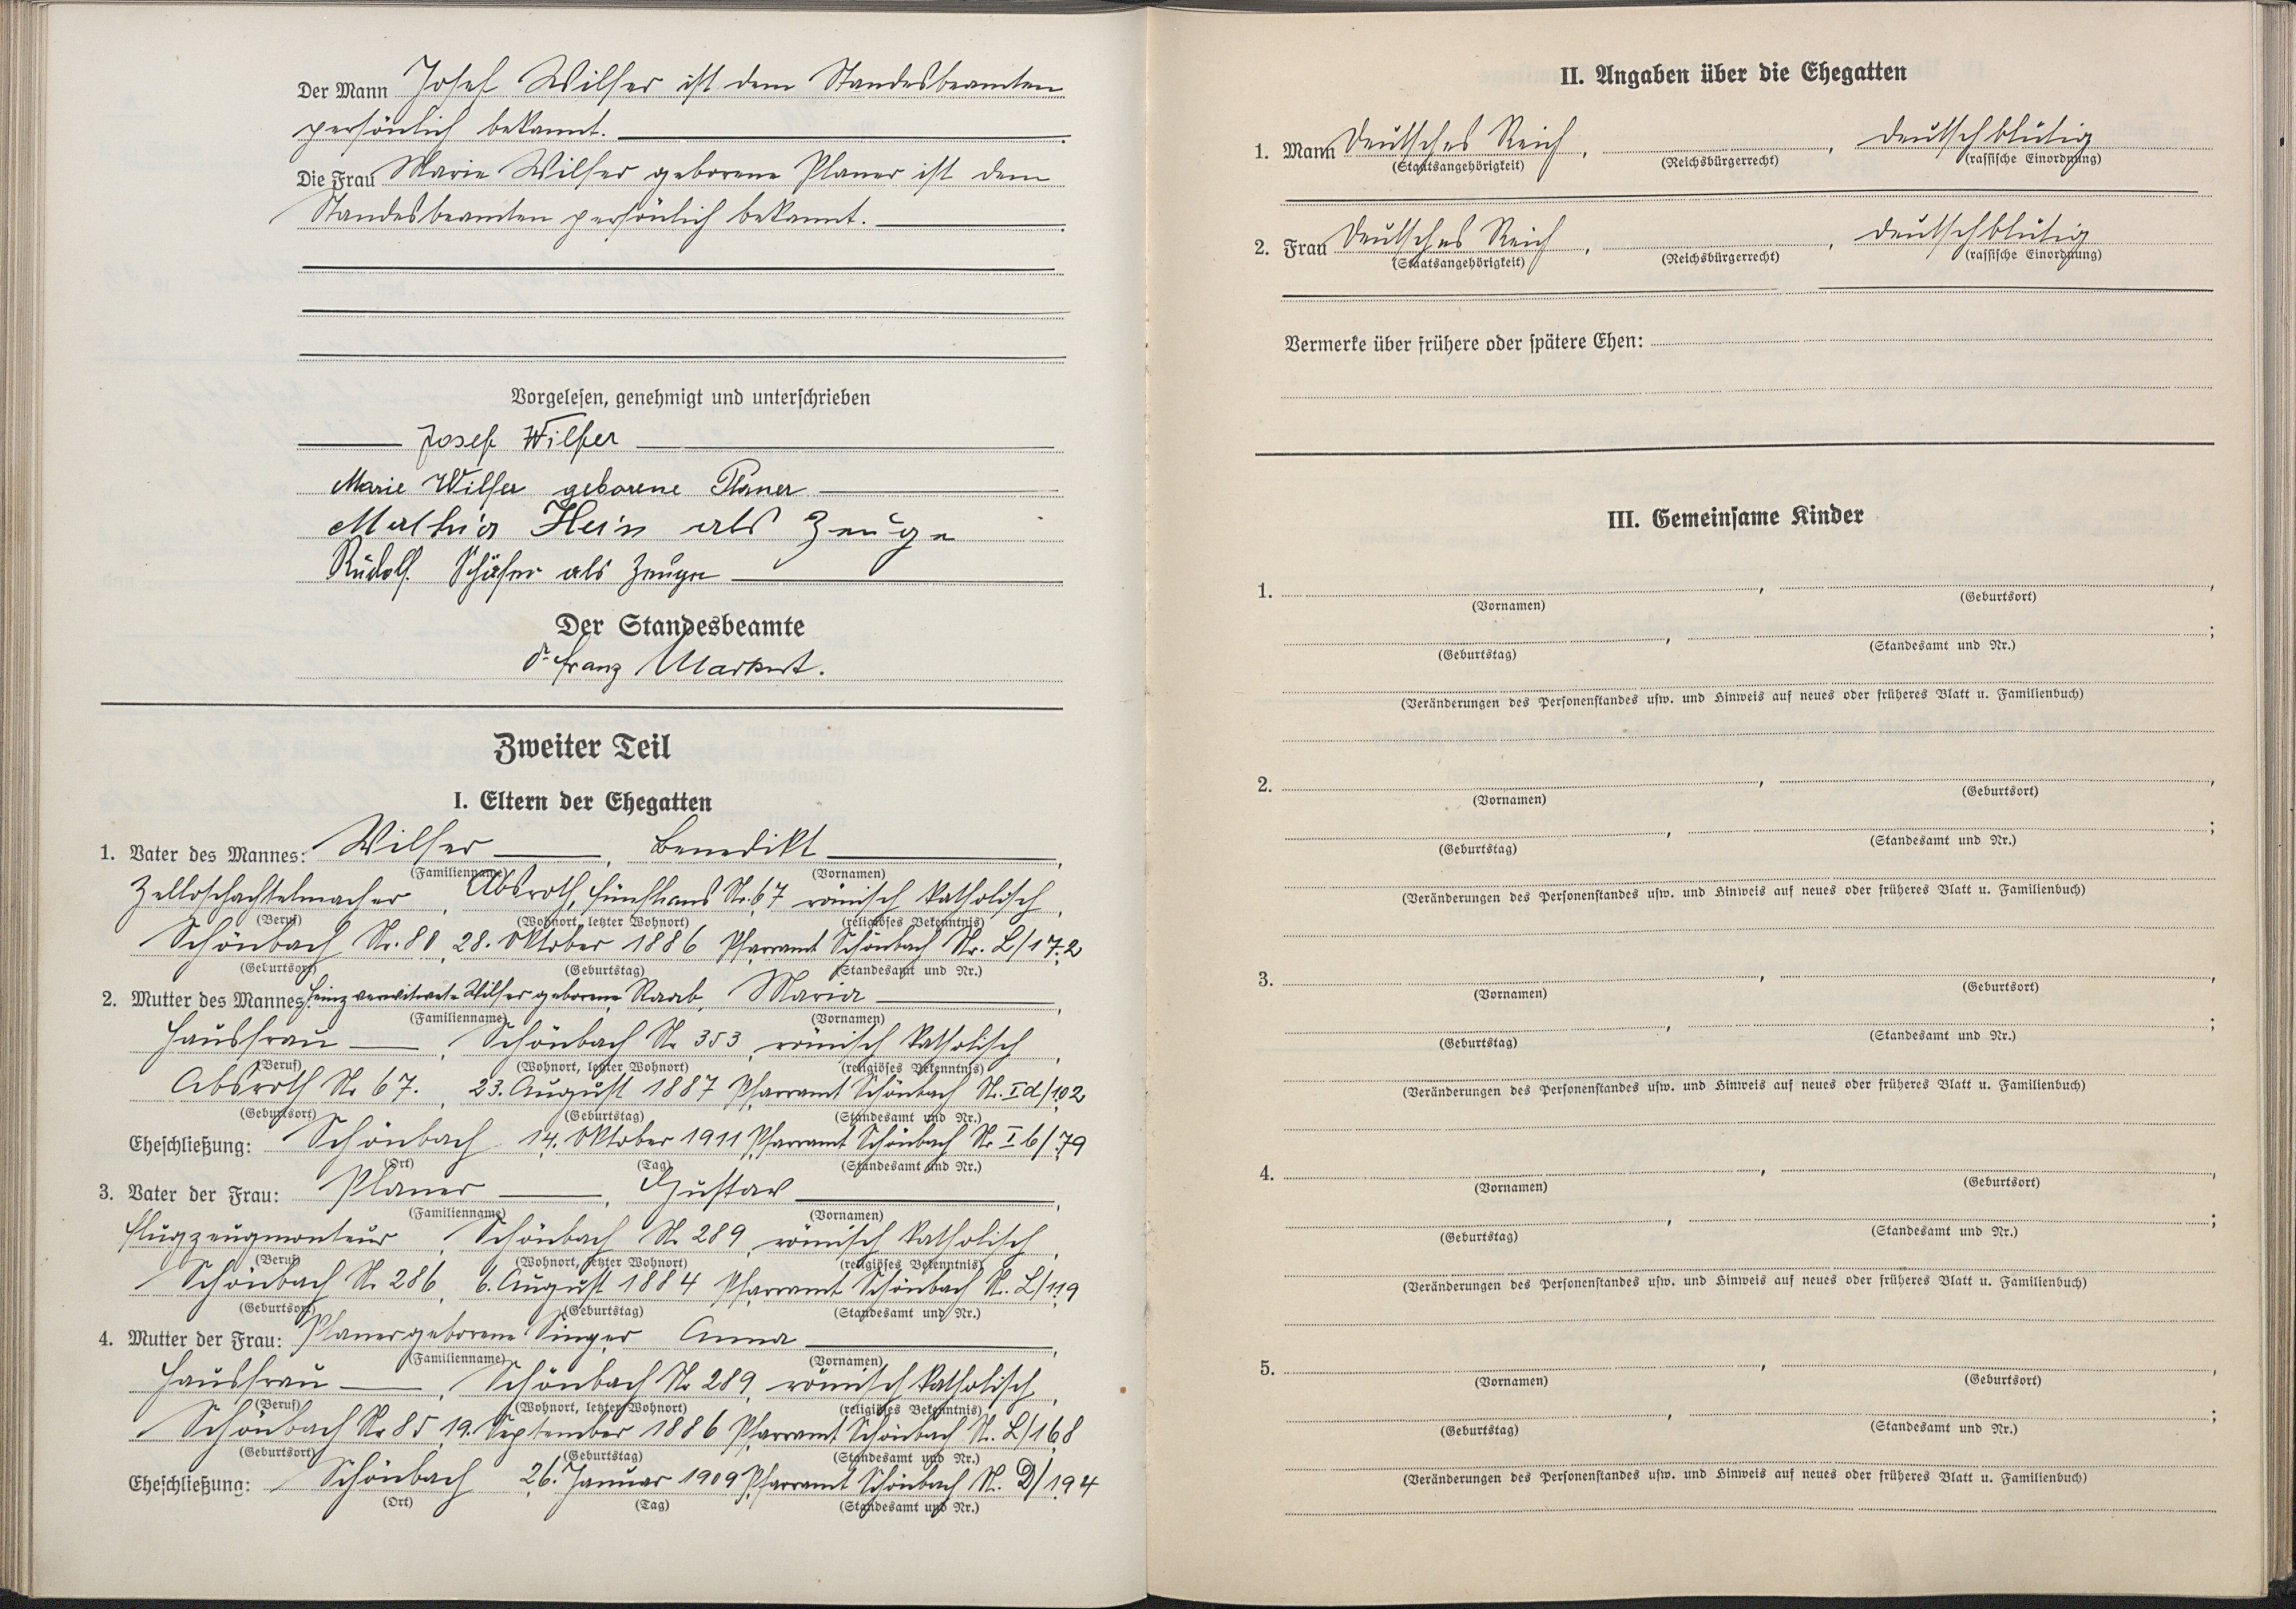 Der Mann Josef Wilfer ist dem Standesbeamten
persönlich bekannt.
Die Frau Marie Wilfer geborene Planer ist dem
Standesbeamten persönlich bekannt.
Vorgelesen, genehmigt und unterschrieben
Josef Wilfer
Marie Wilfer geborene Planer
Mathia Hein als Zeuge
Rudolf Schäfer als Zeuge
Der Standesbeamte
Dr. Franz Markert.
Zweiter Teil
I. Eltern der Ehegatten
1. Vater des Mannes: Wilfer, Benedikt,
(Familienname) (Vornamen)
Zelloschachtelmacher, Absroth, Fünfhaus Nr. 67 römisch katholisch,
(Beruf) (Wohnort, letzter Wohnort) (religiöses Bekenntnis)
Schönbach Nr. 80, 28. Oktober 1886 Pfarramt Schönbach Nr. L/172
(Geburtsort) (Geburtstag) (Standesamt und Nr.)
2. Mutter des Mannes: verwitwete Wilfer geborene Raab, Maria,
(Familienname) (Vornamen)
Hausfrau, Schönbach Nr 353, römisch katholisch,
(Beruf) (Wohnort, letzter Wohnort) (religiöses Bekenntnis)
Absroth Nr 67., 23. August 1887 Pfarramt Schönbach Nr. I d/102
(Geburtsort) (Geburtstag) (Standesamt und Nr.)
Eheschließung: Schönbach 14. Oktober 1911 Pfarramt Schönbach Nr I b/79
(Ort) (Tag) (Standesamt und Nr.)
3. Vater der Frau: Planer, Gustav,
(Familienname) (Vornamen)
Flugzeugmonteur, Schönbach Nr 289, römisch katholisch,
(Beruf) (Wohnort, letzter Wohnort) (religiöses Bekenntnis)
Schönbach Nr. 286, 6. August 1884 Pfarramt Schönbach Nr. L/119
(Geburtsort) (Geburtstag) (Standesamt und Nr.)
4. Mutter der Frau: Planer geborene Singer Anna,
(Familienname) (Vornamen)
Hausfrau, Schönbach Nr 289, römisch katholisch,
(Beruf) (Wohnort, letzter Wohnort) (religiöses Bekenntnis)
Schönbach Nr 85, 19. September 1886 Pfarramt Schönbach Nr. L/168
(Geburtsort) (Geburtstag) (Standesamt und Nr.)
Eheschließung: Schönbach 26. Januar 1909 Pfarramt Schönbach Nr. D/194
(Ort) (Tag) (Standesamt und Nr.)
II. Angaben über die Ehegatten
1. Mann Deutsches Reich, , deutschblütig
(Staatsangehörigkeit) (Reichsbürgerrecht) (rassische Einordnung)
2. Frau Deutsches Reich, , deutschblütig
(Staatsangehörigkeit) (Reichsbürgerrecht) (rassische Einordnung)
Vermerke über frühere oder spätere Ehen:
III. Gemeinsame Kinder
1. , ,
(Vornamen) (Geburtsort)
, ;
(Geburtstag) (Standesamt und Nr.)
(Veränderungen des Personenstandes usw. und Hinweis auf neues oder früheres Blatt u. Familienbuch)
2. , ,
(Vornamen) (Geburtsort)
, ;
(Geburtstag) (Standesamt und Nr.)
(Veränderungen des Personenstandes usw. und Hinweis auf neues oder früheres Blatt u. Familienbuch)
3. , ,
(Vornamen) (Geburtsort)
, ;
(Geburtstag) (Standesamt und Nr.)
(Veränderungen des Personenstandes usw. und Hinweis auf neues oder früheres Blatt u. Familienbuch)
4. , ,
(Vornamen) (Geburtsort)
, ;
(Geburtstag) (Standesamt und Nr.)
(Veränderungen des Personenstandes usw. und Hinweis auf neues oder früheres Blatt u. Familienbuch)
5. , ,
(Vornamen) (Geburtsort)
, ;
(Geburtstag) (Standesamt und Nr.)
(Veränderungen des Personenstandes usw. und Hinweis auf neues oder früheres Blatt u. Familienbuch)